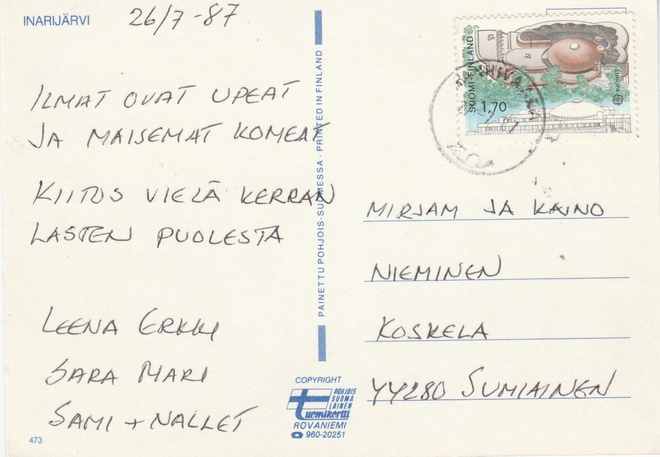 INARIJÄRVI
26/7-87
ILMAT OVAT UPEAT
JA MAISEMAT KOMEAT
KIITOS VIELÄ KERRAN
LASTEN PUOLESTA
LEENA ERKKI
SARA MARI
SAMI + NALLET
473
PAINETTU POHJOIS-SUOMESSA - PRINTED IN FINLAND
COPYRIGHT
POHJOIS
SUOMA
LAINEN
tuomikortti
ROVANIEMI
960-20251
SUOMI-FINLAND
1,70
EUROPA
MIRJAM JA KAINO
NIEMINEN
KOSKELA
44280 SUMIAINEN